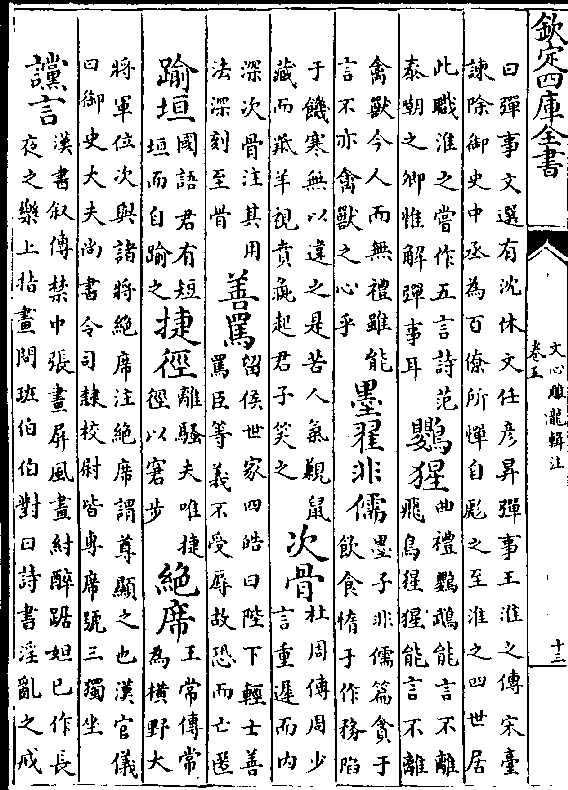 欽定四庫全書
文心雕龍輯注
卷五
十三
曰彈事文選有沈休文任彦昇彈事王淮之傳宋臺
諫除御史中丞為百僚所憚自彪之至淮之四世居
此職淮之嘗作五言詩范
泰嘲之卿惟解彈事耳
鸚猩
曲禮鸚鵡能言不離
飛鳥猩猩能言不離
禽獸今人而無禮雖能
言不亦禽獸之心乎
墨翟非儒
墨子非儒篇貪于
飲食惰于作務陷
于饑寒無以違之是苦人氣鼠
藏而羝羊視賁彘起君子笑之
次骨
杜周傳周少
言重遲而内
深次骨注其用
法深刻至骨
善罵
留侯世家四皓曰陛下輕士善
罵臣等義不受辱故恐而亡匿
踰垣
國語君有短
垣而自踰之
捷徑
離騷夫唯捷
徑以窘步
絶席
王常傳常
為横野大
將軍位次與諸將絶席注絶席謂尊顯之也漢官儀
曰御史大夫尚書令司隸校尉皆專席號三獨坐
讜言
漢書叙傳禁中張畫屏風畫紂醉踞妲已作長
夜之樂上指畫問班伯伯對曰詩書淫亂之戒